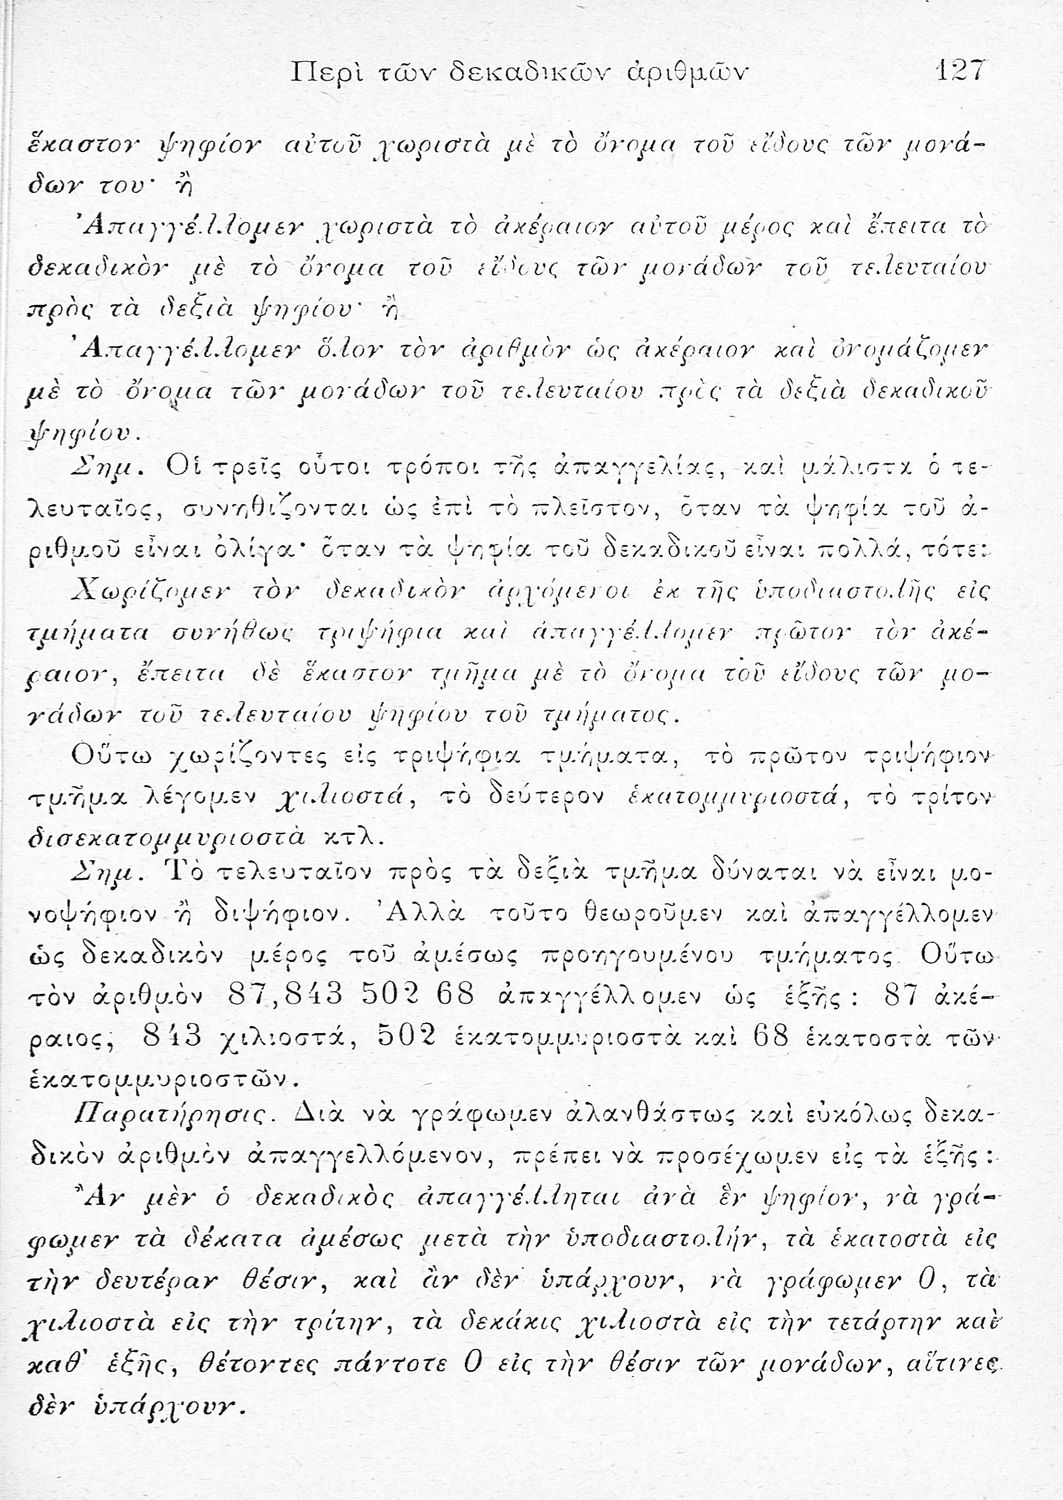 Περὶ τῶν δεκαδικῶν ἀριθμῶν 127
ἕκαστον ψηφίον αὐτοῦ χωριστὰ μὲ τὸ ὄνομα τοῦ εἴδους τῶν μονά-
δων του· ἢ
Ἀπαγγέλλομεν χωριστὰ τὸ ἀκέραιον αὐτοῦ μέρος καὶ ἔπειτα τὸ
δεκαδικὸν μὲ τὸ ὄνομα τοῦ εἴδους τῶν μονάδων τοῦ τελευταίου
πρὸς τὰ δεξιὰ ψηφίου· ἢ
Ἀπαγγέλλομεν ὅλον τὸν ἀριθμὸν ὡς ἀκέραιον καὶ ὀνομάζομεν
μὲ τὸ ὄνομα τῶν μονάδων τοῦ τελευταίου πρὸς τὰ δεξιὰ δεκαδικοῦ
ψηφίου.
Σημ. Οἱ τρεῖς οὗτοι τρόποι τῆς ἀπαγγελίας, καὶ μάλιστα ὁ τε-
λευταῖος, συνηθίζονται ὡς ἐπὶ τὸ πλεῖστον, ὅταν τὰ ψηφία τοῦ ἀ-
ριθμοῦ εἶναι ὀλίγα· ὅταν τὰ ψηφία τοῦ δεκαδικοῦ εἶναι πολλά, τότε:
Χωρίζομεν τὸν δεκαδικὸν ἀρχόμενοι ἐκ τῆς ὑποδιαστολῆς εἰς
τμήματα συνήθως τριψήφια καὶ ἀπαγγέλλομεν πρῶτον τὸν ἀκέ-
ραιον, ἔπειτα δὲ ἕκαστον τμῆμα μὲ τὸ ὄνομα τοῦ εἴδους τῶν μο-
νάδων τοῦ τελευταίου ψηφίου τοῦ τμήματος.
Οὕτω χωρίζοντες εἰς τριψήφια τμήματα, τὸ πρῶτον τριψήφιον
τμῆμα λέγομεν χιλιοστά, τὸ δεύτερον ἑκατομμυριοστά, τὸ τρίτον
δισεκατομμυριοστὰ κτλ.
Σημ. Τὸ τελευταῖον πρὸς τὰ δεξιὰ τμῆμα δύναται νὰ εἶναι μο-
νοψήφιον ἢ διψήφιον. Ἀλλὰ τοῦτο θεωροῦμεν καὶ ἀπαγγέλλομεν
ὡς δεκαδικὸν μέρος τοῦ ἀμέσως προηγουμένου τμήματος. Οὕτω
τὸν ἀριθμὸν 87,843 502 68 ἀπαγγέλλομεν ὡς ἑξῆς: 87 ἀκέ-
ραιος, 843 χιλιοστά, 502 ἑκατομμυριοστὰ καὶ 68 ἑκατοστὰ τῶν
ἑκατομμυριοστῶν.
Παρατήρησις. Διὰ νὰ γράφωμεν ἀλανθάστως καὶ εὐκόλως δεκα-
δικὸν ἀριθμὸν ἀπαγγελλόμενον, πρέπει νὰ προσέχωμεν εἰς τὰ ἑξῆς:
Ἂν μὲν ὁ δεκαδικὸς ἀπαγγέλληται ἀνὰ ἓν ψηφίον, νὰ γρά-
φωμεν τὰ δέκατα ἀμέσως μετὰ τὴν ὑποδιαστολήν, τὰ ἑκατοστὰ εἰς
τὴν δευτέραν θέσιν, καὶ ἂν δὲν ὑπάρχουν, νὰ γράφωμεν 0, τὰ
χιλιοστὰ εἰς τὴν τρίτην, τὰ δεκάκις χιλιοστὰ εἰς τὴν τετάρτην καὶ
καθ' ἑξῆς, θέτοντες πάντοτε 0 εἰς τὴν θέσιν τῶν μονάδων, αἵτινες
δὲν ὑπάρχουν.